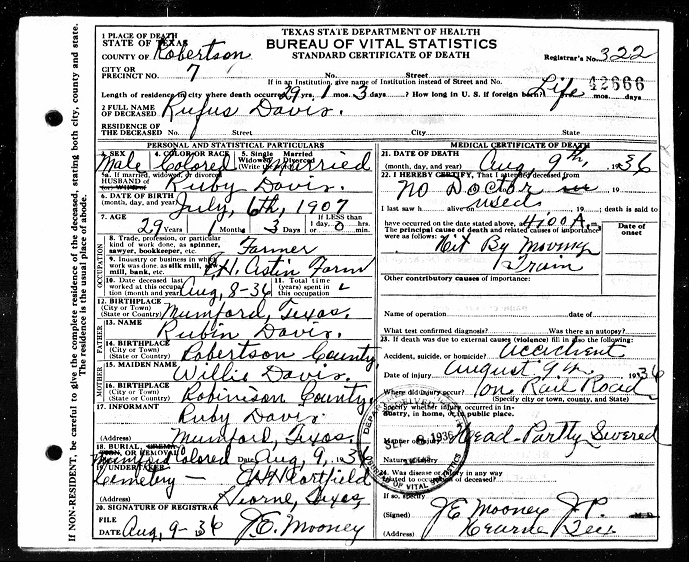 TEXAS STATE DEPARTMENT OF HEALTH
BUREAU OF VITAL STATISTICS
STANDARD CERTIFICATE OF DEATH
If NON-RESIDENT, be careful to give the complete residence of the deceased, stating both city, county and state.
The residence is the usual place of abode.
1 PLACE OF DEATH
STATE OF TEXAS
COUNTY OF Robertson
Registrar's No. 322
CITY OR
PRECINCT NO. 7 No. Street
If in an Institution, give name of Institution instead of Street and No.
42666
Length of residence in city where death occurred 29 yrs. 1 mos. 3 days? How long in U. S. if foreign born? Life mos. days
2 FULL NAME
OF DECEASED Rufus Davis.
RESIDENCE OF
THE DECEASED No. Street City State
PERSONAL AND STATISTICAL PARTICULARS
3. SEX 4. COLOR OR RACE 5. Single Married
Widowed Divorced
(Write
Male Colored Married
5a. If married, widowed, or divorced
HUSBAND of Ruby Davis.
6. DATE OF BIRTH
(month, day, and year) July, 6th, 1907
7. AGE 29 Years 1 Months 3 Days If LESS than
1 day, 0 hrs.
min.
OCCUPATION
8. Trade, profession, or particular
kind of work done, as spinner,
sawyer, bookkeeper, etc. Farmer
9. Industry or business in which
work was done as silk mill,
mill, bank, etc. Astin Farm
10. Date deceased last
worked at this occupation
(month and year) Aug, 8-36
11. Total time
(years) spent in
this occupation
12. BIRTHPLACE
(City or Town)
(State or Country) Mumford, Texas.
FATHER
13. NAME Rubin Davis.
14. BIRTHPLACE
(City or Town)
(State or Country) Robertson County
MOTHER
15. MAIDEN NAME Willie Davis.
16. BIRTHPLACE
(City or Town)
(State or Country) Robinison County
17. INFORMANT Ruby Davis
(Address) Mumford, Texas.
18. BURIAL, OR REMOVAL
Mumford Colored Date Aug, 9, 1936
19. UNDERTAKER
Cemetery —
(Address) Hearne, Texas,
20. SIGNATURE OF REGISTRAR
FILE
DATE Aug, 9-36 J.E. Mooney
MEDICAL CERTIFICATE OF DEATH
21. DATE OF DEATH
(month, day, and year) Aug, 9th, 1936
22. I HEREBY CERTIFY, That I attended deceased from
No Doctor in 19
used
I last saw h alive on 19 ; death is said to
have occurred on the date stated above, at 4:00 A.m.
The principal cause of death and related causes of importance
were as follows:
Date of
onset
Hit By Moving
Train
Other contributory causes of importance:
Name of operation date of
What test confirmed diagnosis? Was there an autopsy?
23. If death was due to external causes (violence) fill in also the following:
Accident, suicide, or homicide? accident
Date of injury August 9th 1936
Where did injury occur? on Rail Road
(Specify city or town, county, and State)
Specify whether injury occurred in in-
dustry, in home, or in public place.
Manner of injury Head-Partly Severed
Nature of injury
24. Was disease or injury in any way
related to occupation of deceased?
If so, specify
(Signed) J E Mooney J.P. M. D.
(Address) Hearne Tex
1936
BUREAU OF VITAL STATISTICS